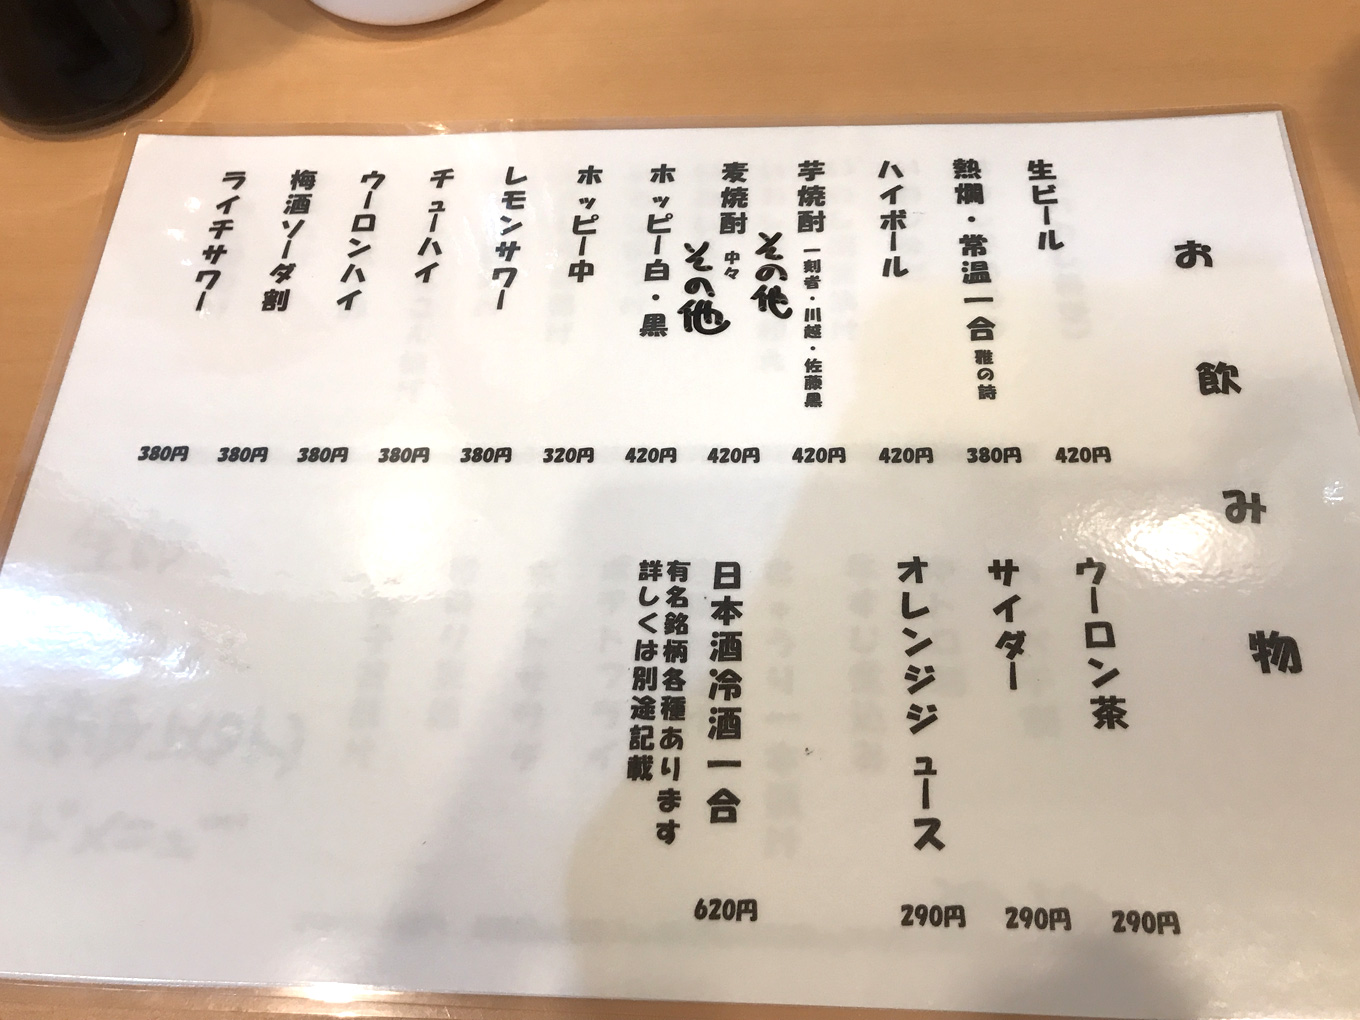 お飲み物
生ビール 420円
熱燗・常温一合 雅の詩 380円
ハイボール 420円
芋焼酎 一刻者・川越・佐藤黒 その他 420円
麦焼酎 中々 その他 420円
ホッピー白・黒 420円
ホッピー中 320円
レモンサワー 380円
チューハイ 380円
ウーロンハイ 380円
梅酒ソーダ割 380円
ライチサワー 380円
ウーロン茶 290円
サイダー 290円
オレンジジュース 290円
日本酒冷酒一合 620円
有名銘柄各種あります
詳しくは別途記載